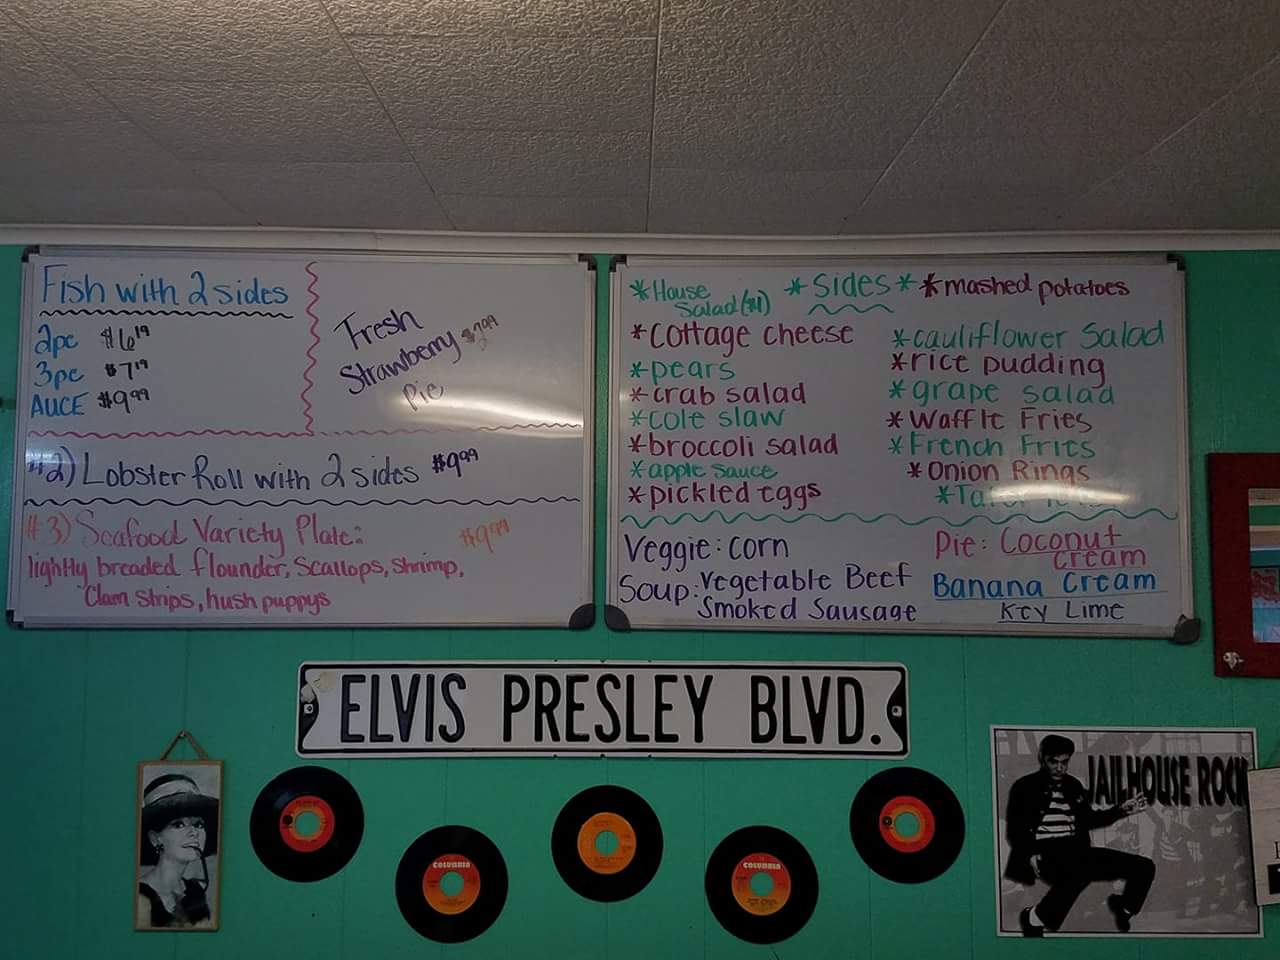 Fish with 2 sides
2pc $6.19
3pc $7.19
AUCE $9.99
Fresh
Strawberry
Pie
#2) Lobster Roll with 2 sides $9.99
#3) Seafood Variety Plate: $9.99
lightly breaded flounder, Scallops, Shrimp,
Clam strips, hush puppys
*House
Salad (#1)
*Sides*
*mashed potatoes
*Cottage cheese
*pears
*crab salad
*cole slaw
*broccoli salad
*apple sauce
*pickled eggs
*cauliflower Salad
*rice pudding
*grape salad
*Waffle Fries
*French Fries
*Onion Rings
Veggie: corn
Soup: Vegetable Beef
Smoked Sausage
Pie: Coconut
Cream
Banana Cream
Key Lime
ELVIS PRESLEY BLVD.
COLUMBIA
COLUMBIA
JAILHOUSE ROCK